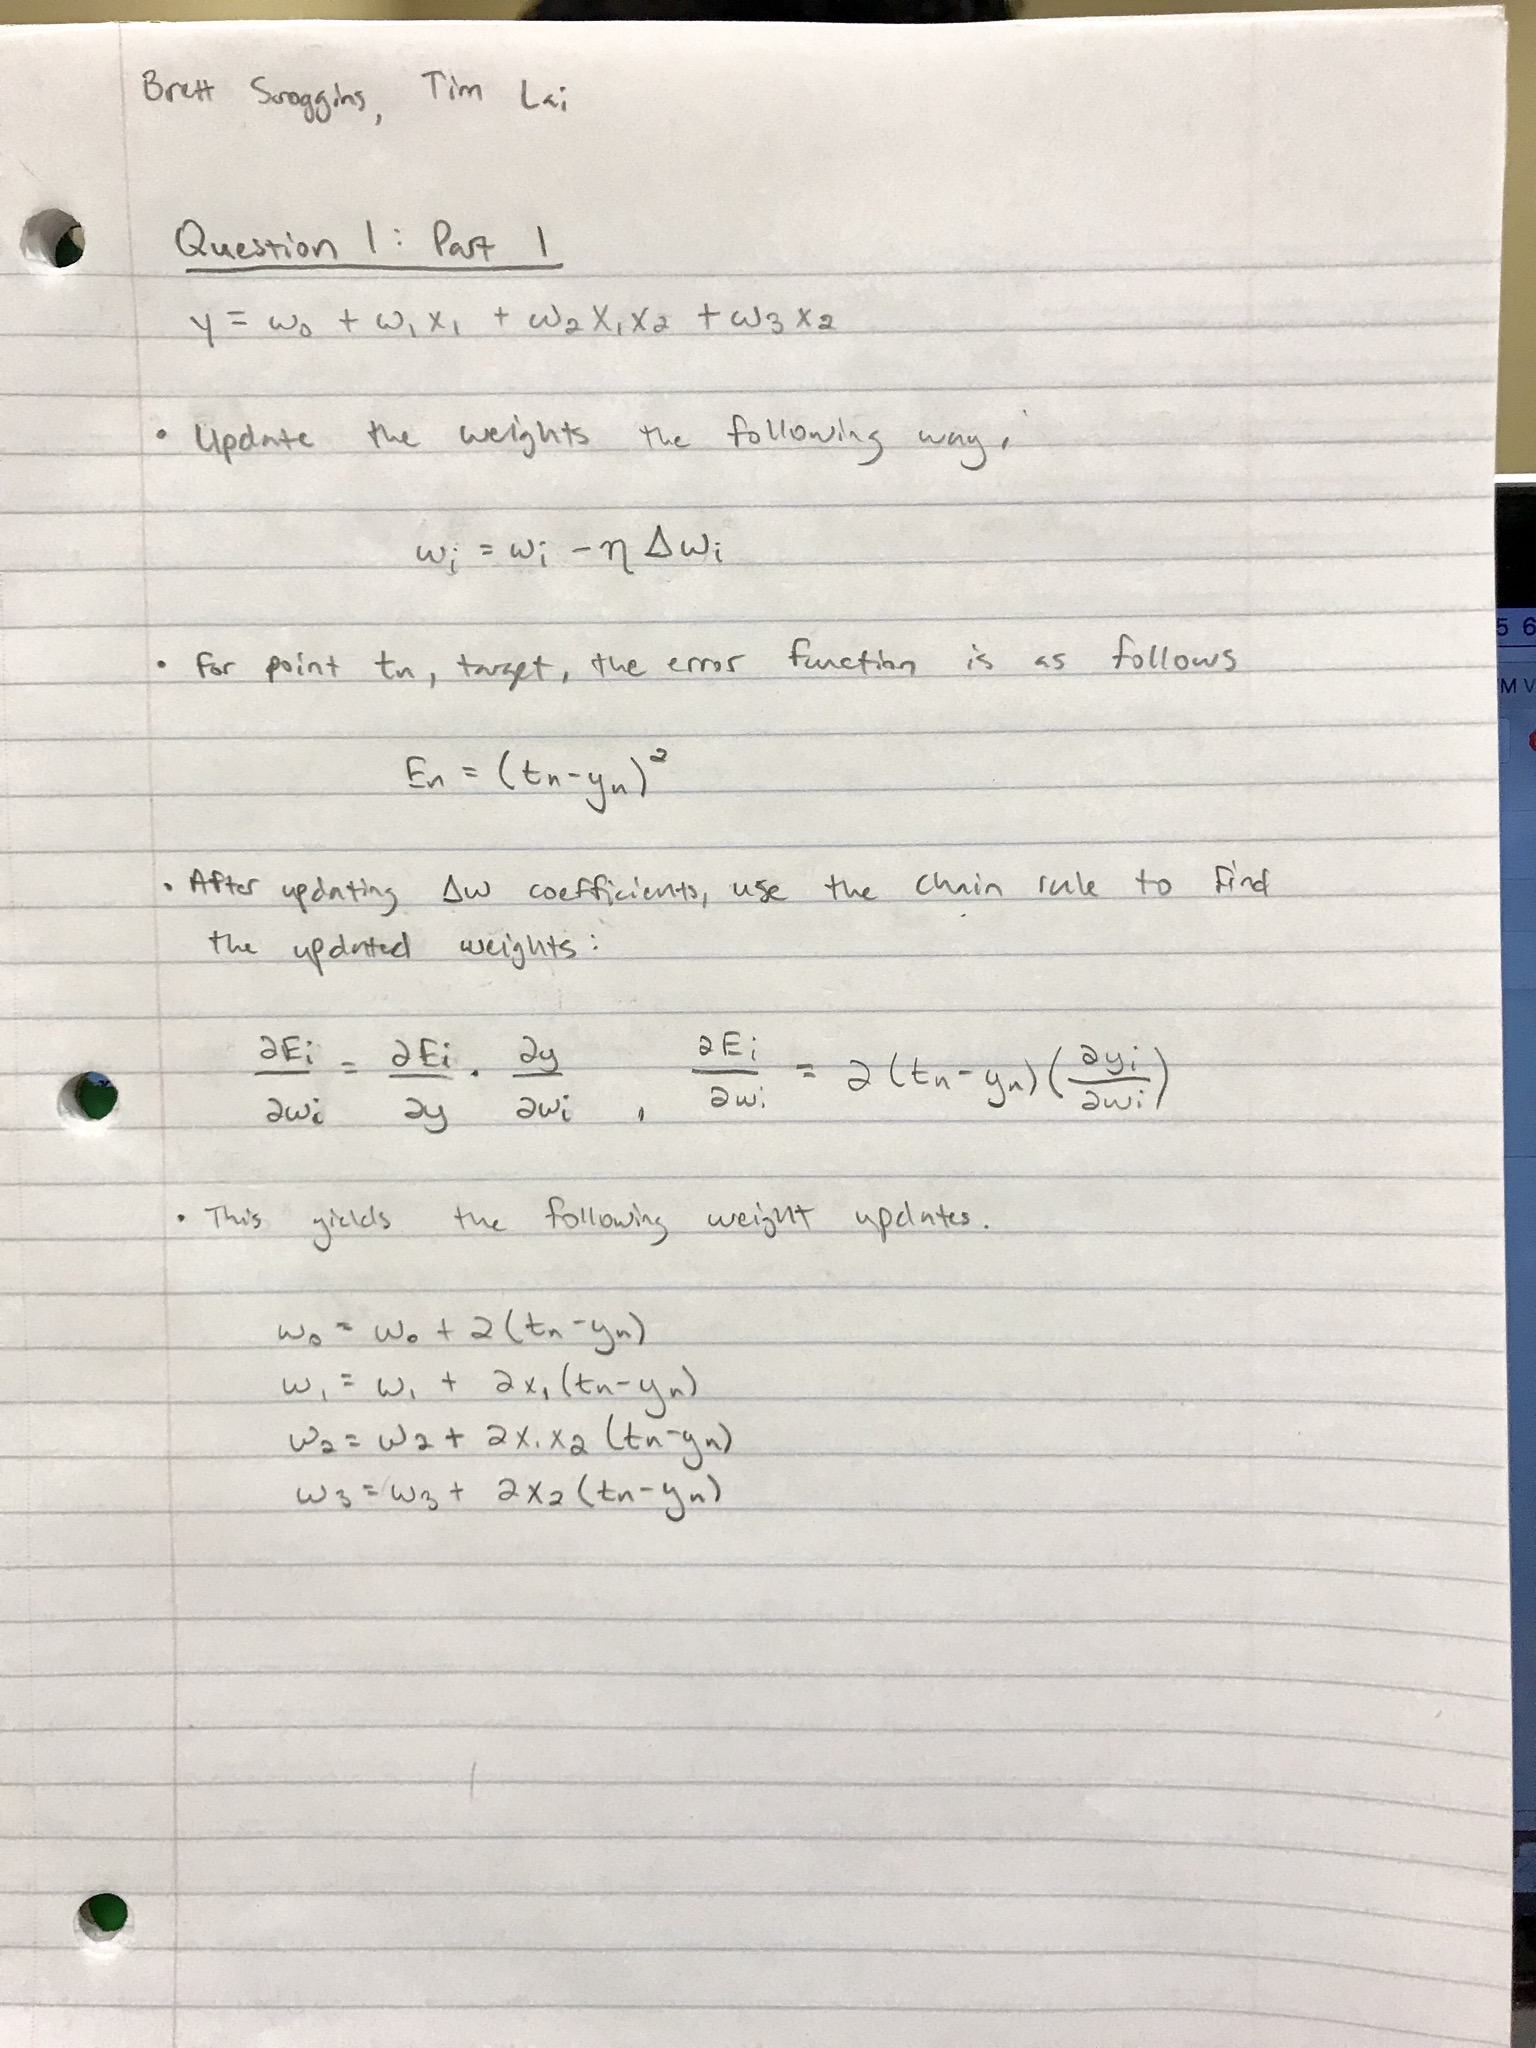 Brett Scroggins, Tim Lai
Question 1: Part 1
y = w₀ + w₁x₁ + w₂x₁x₂ + w₃x₂
• Update the weights the following way.
wᵢ = wᵢ - η Δwᵢ
• For point tₙ, target, the error function is as follows
Eₙ = (tₙ-yₙ)²
• After updating Δw coefficients, use the chain rule to find
the updated weights:
∂Eᵢ/∂wᵢ = ∂Eᵢ/∂y · ∂y/∂wᵢ , ∂Eᵢ/∂wᵢ = 2(tₙ-yₙ)(∂yᵢ/∂wᵢ)
• This yields the following weight updates.
w₀ = w₀ + 2(tₙ-yₙ)
w₁ = w₁ + 2x₁(tₙ-yₙ)
w₂ = w₂ + 2x₁x₂(tₙ-yₙ)
w₃ = w₃ + 2x₂(tₙ-yₙ)
5 6
M V